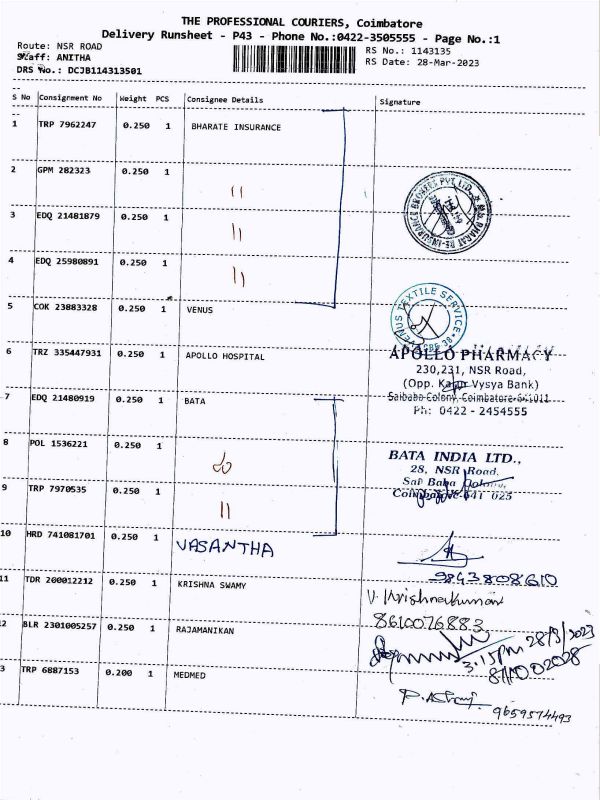 THE PROFESSIONAL COURIERS, Coimbatore
Delivery Runsheet - P43 - Phone No.:0422-3505555 - Page No.:1
Route: NSR ROAD
RS No.: 1143135
Staff: ANITHA
RS Date: 28-Mar-2023
DRS No.: DCJB114313501
S No Consignment No Weight PCS Consignee Details Signature
1 TRP 7962247 0.250 1 BHARATE INSURANCE
2 GPM 282323 0.250 1 "
3 EDQ 21481879 0.250 1 "
4 EDQ 25980891 0.250 1 "
5 COK 23883328 0.250 1 VENUS
VENUS TEXTILE SERVICE
6 TRZ 335447931 0.250 1 APOLLO HOSPITAL
APOLLO PHARMACY
230,231, NSR Road,
(Opp. Karur Vysya Bank)
Saibaba Colony, Coimbatore-641011
Ph: 0422 - 2454555
7 EDQ 21480919 0.250 1 BATA
8 POL 1536221 0.250 1
BATA INDIA LTD.,
28, NSR Road,
Sai Baba Colony,
Coimbatore-641 025
9 TRP 7970535 0.250 1 "
10 HRD 741081701 0.250 1 VASANTHA
9843808610
11 TDR 200012212 0.250 1 KRISHNA SWAMY
V. Krishnakumar
8610076883
2 BLR 2301005257 0.250 1 RAJAMANIKAN
3:15pm 28/3/2023
3 TRP 6887153 0.200 1 MEDMED
9659574493